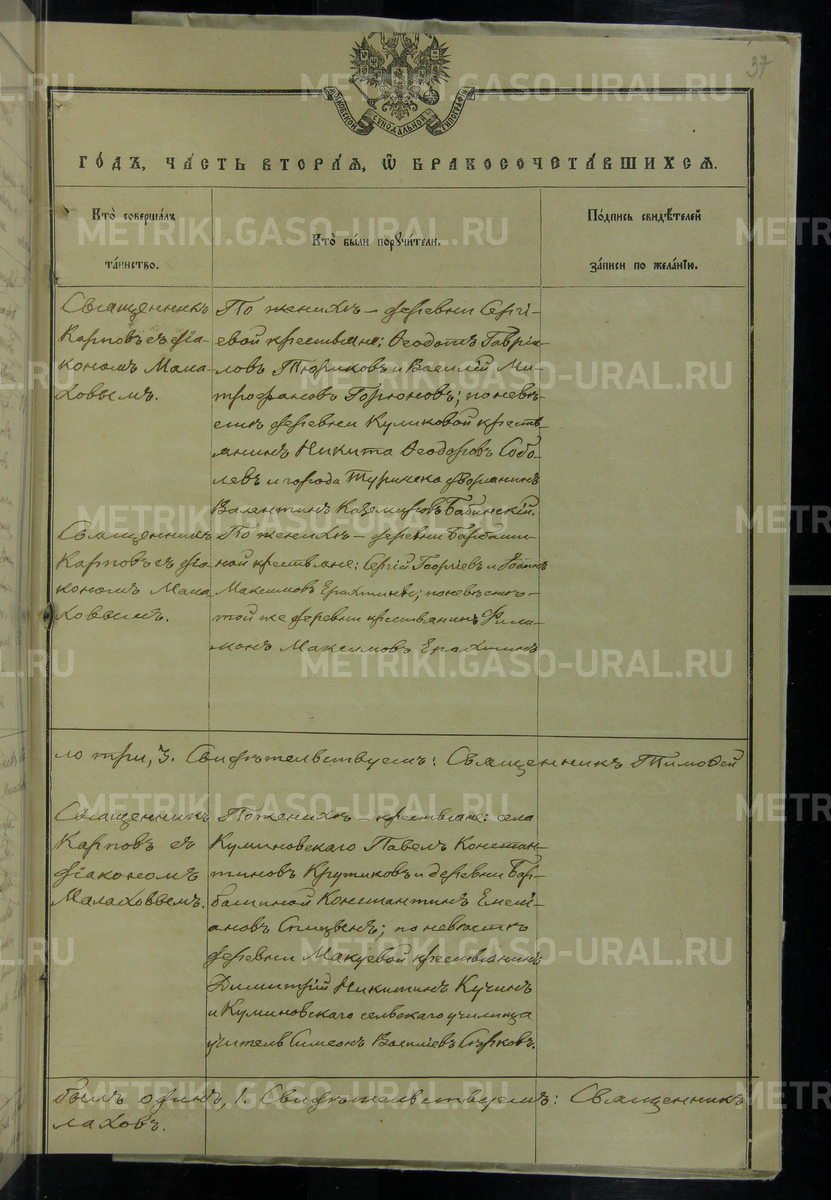 37
МОСКОВСКОЙ СѴНОДАЛЬНОЙ ТИПОГРАФІИ
ГОДЪ, ЧАСТЬ ВТОРАЯ, Ѡ БРАКОСОЧЕТАВШИХСЯ.
Кто совершалъ
таинство.
Кто были поручители.
Подпись свидѣтелей
записи по желанію.
Священникъ
Карповъ съ діа-
кономъ Мала-
ховымъ.
По женихѣ – деревни Сергі-
евой крестьяне: Ѳеодотъ Гаврі-
ловъ Тюриковъ и Василій Ми-
трофановъ Горюновъ; по невѣ-
стѣ деревни Куликовой кресть-
янинъ Никита Ѳеодоровъ Собо-
левъ и города Туринска дворянинъ
Валентинъ Каземировъ Бабинскій.
Священникъ
Карповъ съ діа-
кономъ Мала-
ховымъ.
По женихѣ – деревни Барбаши-
ной крестьяне: Сергій Георгіевъ и
Максимовъ Ерахтины; по невѣстѣ –
той же деревни крестьянинъ Фили-
монъ Максимовъ Ерахтинъ
ло три, 3. Свидѣтельствуемъ: Священникъ Тимоѳей
Священникъ
Карповъ съ
діакономъ
Малаховымъ.
По женихѣ – крестьяне: села
Куминовскаго Павелъ Констан-
тиновъ Крутиковъ и деревни Бар-
башиной Константинъ Емелі-
ановъ; по невѣстѣ
деревни Макуевой крестьянинъ
Димитрій Никитинъ Кучинъ
и Куминовскаго сельскаго училища
учитель Симеонъ Василіевъ Сурковъ.
былъ одинъ, 1. Свидѣтельствуемъ: Священникъ
лаховъ.
METRIKI.GASO-URAL.RU